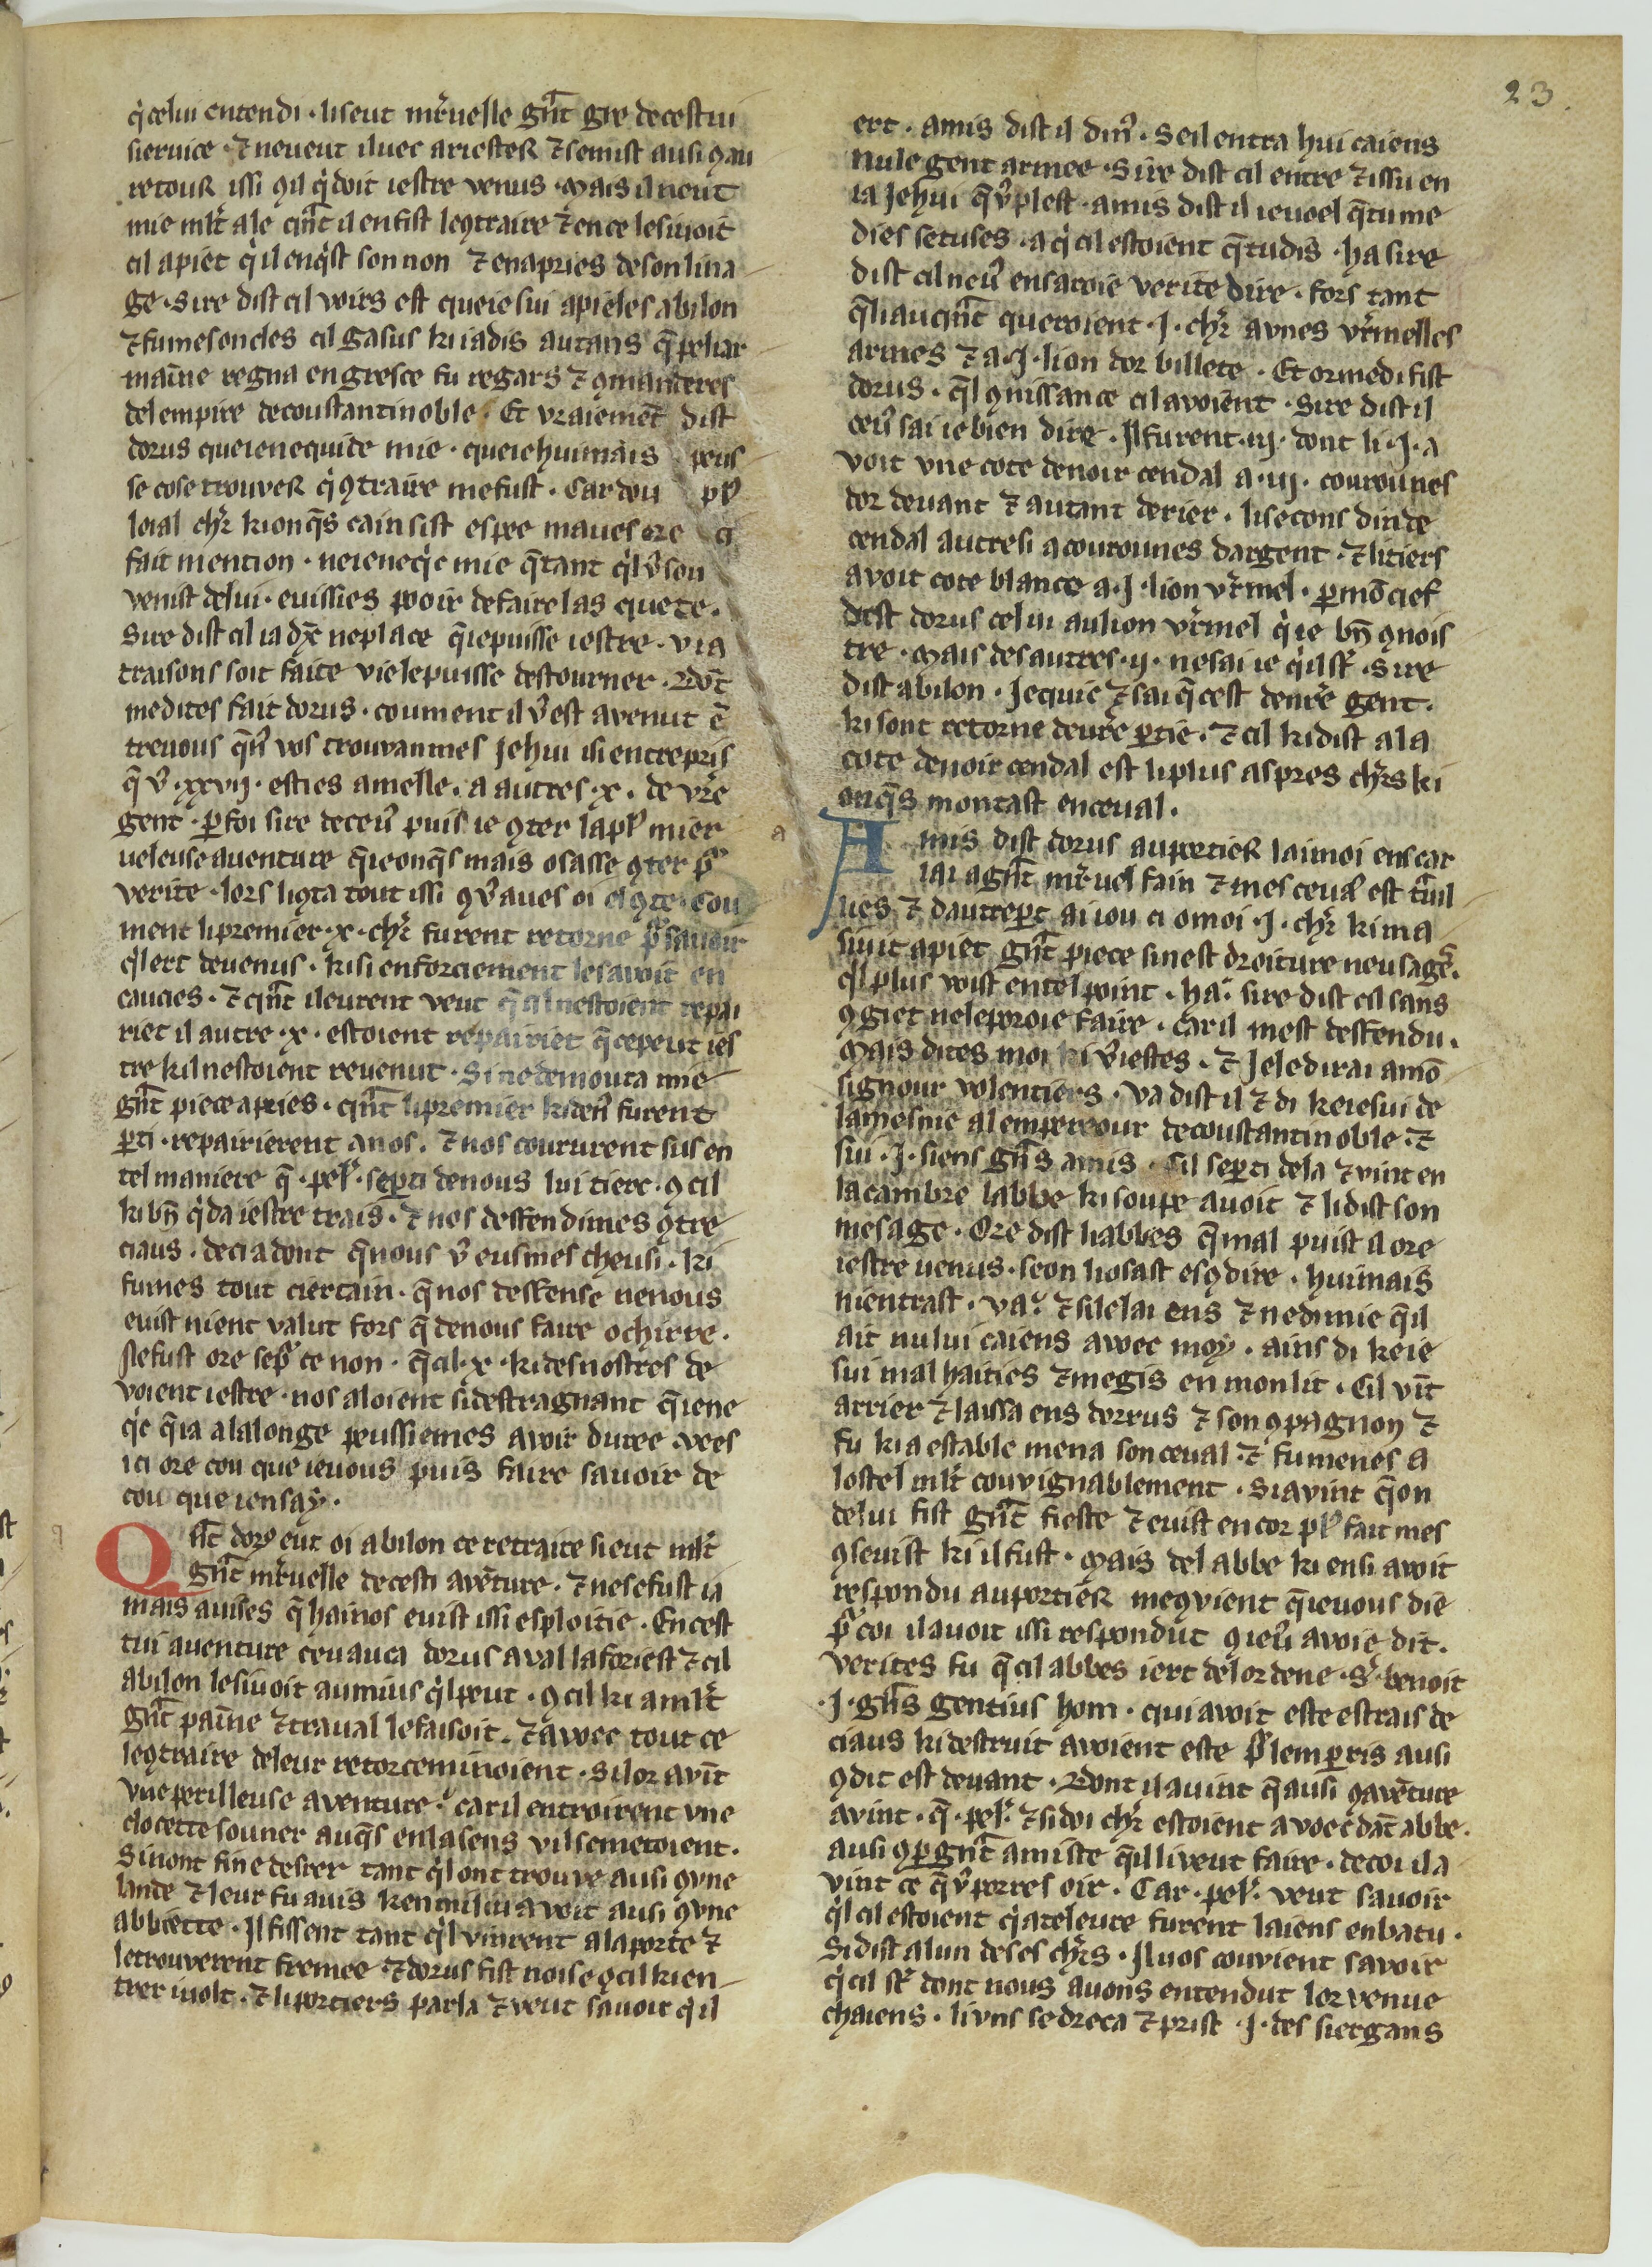 23.
q̇ celui entendi · li seut mr̄uelle gn̄t gre de cestui
sieruice · ⁊ ne veut iluec ariester ⁊ se mist ausi ꝯ au
retour issi ꝯ il q̇ doit iestre venus · Mais il neut
mie ml̄t ale qn̄t il en fist le ꝯtraire ⁊ en ce le siuoit
cil a piet q̇ il enq̇st son non ⁊ en apries de son lina
ge · Sire dist cil voirs est que ie sui apieles abilon
⁊ fu mes oncles cil Gasus ki iadis au tans q̄ peliar
maīne regna en gresce fu regars ⁊ ꝯmanderes
del empire de coustantinoble · Et vraiemēt dist
dorus que ie ne quide mie · que ie huimais peus
se cose trouver q̇ ꝯtraire me fust · Car dou pl᷒
loial chr̄ ki onq̄s cainsist espee maues ore ci
fait mention · ne ie ne q̇c mie q̄ tant q̇l v᷒ sou
venist de lui · euissies pooir de faire las quete ·
Sire dist cil ia dx̄ ne place q̄ ie puisse iestre · v ia
traisons soit faite v ie le puisse destourner · Dōt
me dites fait dorus · coument il v᷒ est avenut ē
treuous q̄n᷒ vos trouvanmes Jehui isi entrepris
q̄ v᷒ · xxvij · esties a melle · a autres · x · de vr̄e
gent · ꝑ foi sire de ceu᷒ puis ie ꝯter la pl᷒ mier
ueleuse auenture q̄ ie onq̄s mais osasse ꝯter pr̄
verite · lors li ꝯta tout issi ꝯ v᷒ aues oi el ꝯte · Cou
ment li premier · x · chr̄ furent retorne pr̄ sauoir
q̇l ert deuenus · ki si enforciement les auoit en
caucies · ⁊ qn̄t il eurent veut q̄ cil nestoient repai
riet il autre · x · estoient repairiet q̄ ce peut ies
tre kil nestoient reuenut · Si ne demoura mie
gn̄t piece apries · qn̄t li premier ki den᷒ furent
ꝑti · repairierent a nos · ⁊ nos coururent sus en
tel maniere q̄ · pel᷒ · se ꝑti de nous lui tierc · ꝯ cil
ki bn̄ q̇da iestre trais · ⁊ nos deffendimes ꝯtre
ciaus · deci adont q̄ nous v᷒ eusmes cheusi · ki
fumes tout ciertain · q̄ nos deffense ne nous
euist nient valut fors q̄ de nous faire ochirre ·
Se fust ore sepr̄ ce non · q̄ cil · x · ki des nostres de
voient iestre · nos aloient si destragnant q̄ ie ne
q̇c q̄ ia a la longe peussiemes avoir duree · vees
ici ore cou que ie vous puis faire savoir de
cou que ien say ·
Qn̄t dor᷒ eut oi abilon ce retraire si eut ml̄t
gn̄t mr̄uelle de cesti avēture · ⁊ ne se fust ia
mais auises q̄ hainos euist issi esploitie · En cest
tui auenture ceuauca dorus aval la foriest ⁊ cil
abilon le siuoit au mius q̇l peut · ꝯ cil ki a ml̄t
gn̄t paīne ⁊ traual le faisoit · ⁊ awec tout ce
le ꝯtraire de leur retor ceminoient · Si lor avīt
vne perilleuse aventure · car il entroirent vne
clocette souner auq̄s en la sens v il se metoient ·
Si vont fine destrer tant q̇l ont trouve ausi ꝯ vne
lande ⁊ leur fu auis ken miliu avoit ausi ꝯ vne
abbiette · Il fissent tant q̇l vinrent a la porte ⁊
le trouverent fremee ⁊ dorus fist noise ꝯ cil ki en
trer i volt · ⁊ li portiers parla ⁊ veut sauoir q̇ il
ert · amis dist il din᷒ · se il entra hui caiens
nule gent armee · Sire dist cil entre ⁊ issu en
ia Jehui q̄ v᷒ plest · amis dist il ie uoel q̄ tu me
dies se tu ses · a q̇ cil estoient q̄ tu dis · ha sire
dist cil neu᷒ en saroie verite dire · fors tant
q̄ li aucn̄t queroient · J · chr̄ a vnes vr̄melles
armes ⁊ a · J · lion dor billete · Et or me di fist
dorus · q̄l ꝯnissance cil avoiēnt · Sire dist il
ceu᷒ sai ie bien dire · Il furent · iij · dont li · J · a
voit vne cote de noir cendal a · iij · courounes
dor deuant ⁊ autant derier · li secons dinde
cendal autresi a courounes dargent · ⁊ li tiers
avoit cote blance a · J · lion vr̄mel · ꝑ mō cief
dist dorus celui au lion vr̄mel q̇ ie bn̄ ꝯnois
tre · Mais des autres · ij · ne sai ie q̇ il st᷒ · Sire
dist abilon · Je quic ⁊ sai q̄ cest de nr̄e gent ·
ki sont retorne de vr̄e ꝑtie · ⁊ cil ki dist a la
cote de noir cendal est li plus aspres chr̄s ki
onq̄s montast en ceual ·
Amis dist dorus au portier lai moi ens car
iai a gn̄t mr̄uel fain ⁊ mes ceual est trauil
lies ⁊ dautreꝑt ai iou ci o moi · J · chr̄ ki ma
siuit a piet gn̄t piece si nest droiture ne usage᷒ ·
q̇l plus voist en tel point · ha · sire dist cil sans
ꝯgiet ne le poroie faire · car il mest deffendu ·
Mais dites moi ki v᷒ iestes · ⁊ Je le dirai a mō
signour volentiers · va dist il ⁊ di ke ie sui de
la mesnie al empereour de coustantinoble · ⁊
sui · J · siens gn̄s amis · Cil se ꝑti de la ⁊ vint en
la cambre labbe ki soupe avoit ⁊ li dist son
mesage · Ore dist li abbes q̄ mal puist il ore
iestre uenus · se on li osast esꝯdire · huimais
ni entrast · va · ⁊ si le lai ens ⁊ ne di mie q̄ il
ait nului caiens awec moy · ains di ke ie
sui mal haities ⁊ me gis en mon lit · Cil vīt
arrier ⁊ laissa ens dorrus ⁊ son ꝯpagnon ⁊
fu ki a estable mena son ceual · ⁊ fu menes a
lostel ml̄t couvignablement · Si avint q̄ on
de lui fist gn̄t fieste ⁊ euist encor pl᷒ fait mes
ꝯ seuist ki il fust · Mais del abbe ki ensi avoit
respondu au portier me ꝯvient q̄ ie vous die
pr̄coi il auoit issi respondut ꝯ ieu᷒ avoie dit ·
verites fu q̄ cil abbes iert del ordene · S᷒ · benoit
· J · gn̄s gentius hom · qui avoit este estrais de
ciaus ki destruit avoient este pr̄ lemperris ausi
ꝯ dit est deuant · Dont il avint q̄ ausi ꝯ avēture
avint · q̄ · pel᷒ · ⁊ si doi chr̄ estoient avoec dāt abbe ·
ausi ꝯ ꝑ gn̄t amiste q̄ il li veut faire · de coi il a
vint ce q̄ v᷒ porres oir · Car · pel᷒ · veut savoir
q̇l cil estoient q̇ a tel eure furent laiens enbatu ·
Si dist a lun de ses chr̄s · Il vos couvient savoir
q̇ cil st᷒ dont nous avons entendut lor venue
chaiens · li vns se dreca ⁊ prist · J · des siergans